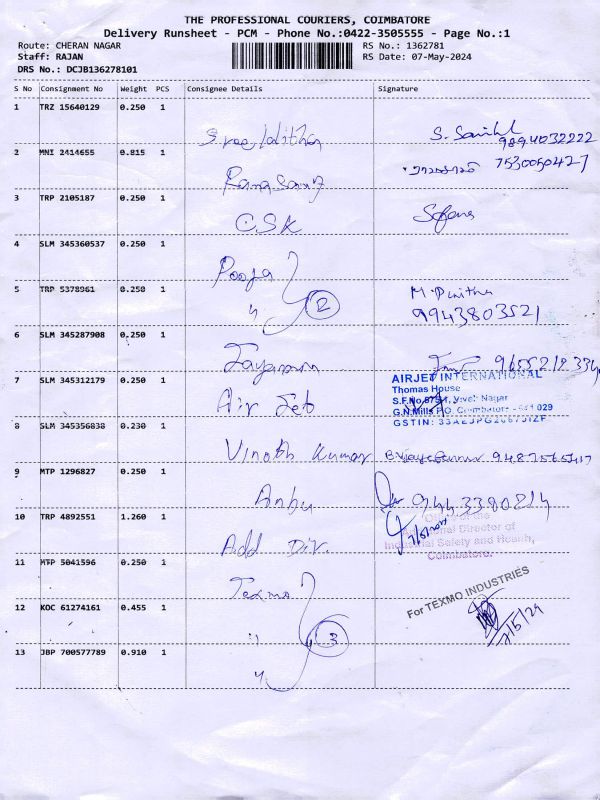 THE PROFESSIONAL COURIERS, COIMBATORE
Delivery Runsheet - PCM - Phone No.:0422-3505555 - Page No.:1
Route: CHERAN NAGAR RS No.: 1362781
Staff: RAJAN RS Date: 07-May-2024
DRS No.: DCJB136278101
S No Consignment No Weight PCS Consignee Details Signature
1 TRZ 15640129 0.250 1
Sree lalitha 9894032222
2 MNI 2414655 0.815 1
7530050427
3 TRP 2105187 0.250 1
CSK
4 SLM 345360537 0.250 1
Pooja
5 TRP 5378961 0.250 1
" 2 9943803521
6 SLM 345287908 0.250 1
7 SLM 345312179 0.250 1
Air Jet
AIRJET INTERNATIONAL
Thomas House
G.N.Mills P.O. Coimbatore - 641 029
8 SLM 345356838 0.230 1
Vinoth Kumar
9 MTP 1296827 0.250 1
Anbu 9443380814
10 TRP 4892551 1.260 1
Add Dir.
Director of
Industrial Safety and Health,
Coimbatore.
11 MTP 5041596 0.250 1
Texmo
For TEXMO INDUSTRIES
12 KOC 61274161 0.455 1
" 3
7/5/24
13 JBP 700577789 0.910 1
"